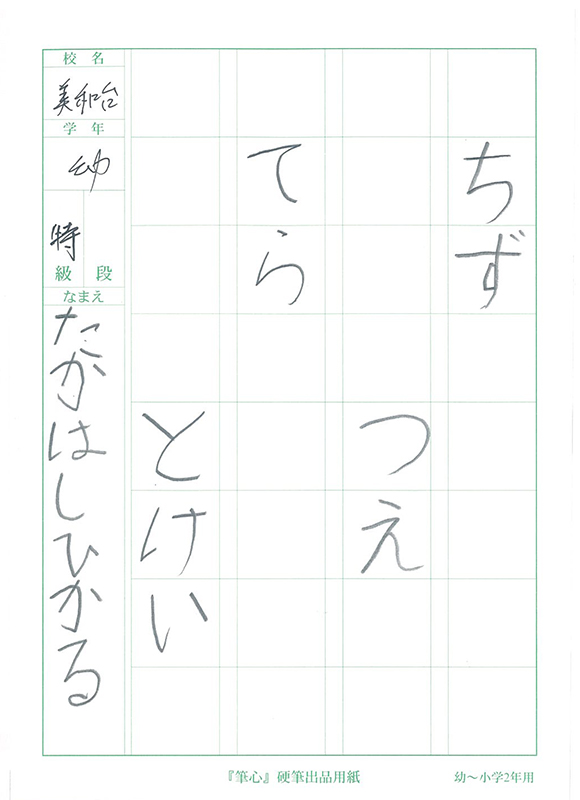 ちず
つえ
てら
とけい
校名
美和台
学年
幼
特
級 段
なまえ
たかはしひかる
『筆心』硬筆出品用紙
幼～小学2年用